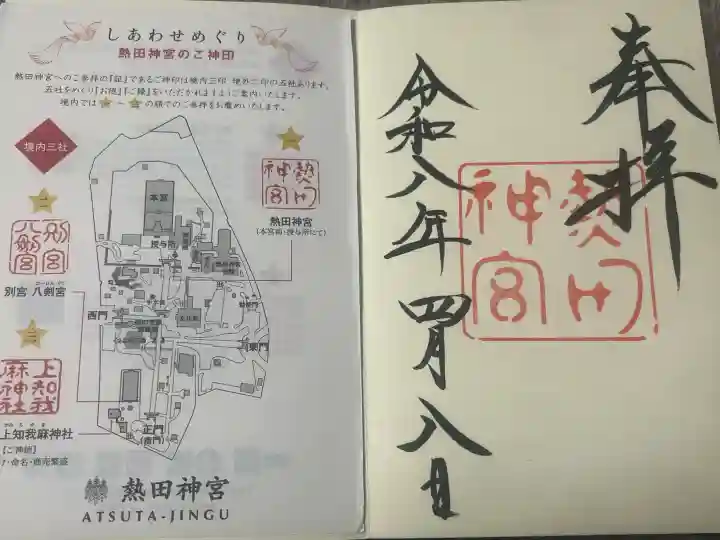 しあわせめぐり
熱田神宮のご神印
熱田神宮へのご参拝の『証』であるご神印は境内三印 境外二印の五社あります。
五社をめぐり『お徳』『ご縁』をいただかれますようご案内いたします。
境内では 一 ～ 三 の順でのご参拝をお薦めいたします。
境内三社
一
熱田
神宮
熱田神宮
(本宮前・授与所にて)
本宮
授与所
二
別宮
八剣宮
別宮 八剣宮
西門
東門
三
上知我
麻神社
上知我麻神社
【ご神徳】
命名・商売繁盛
正門
(南門)
熱田神宮
ATSUTA-JINGU
奉拝
熱田
神宮
令和八年四月八日